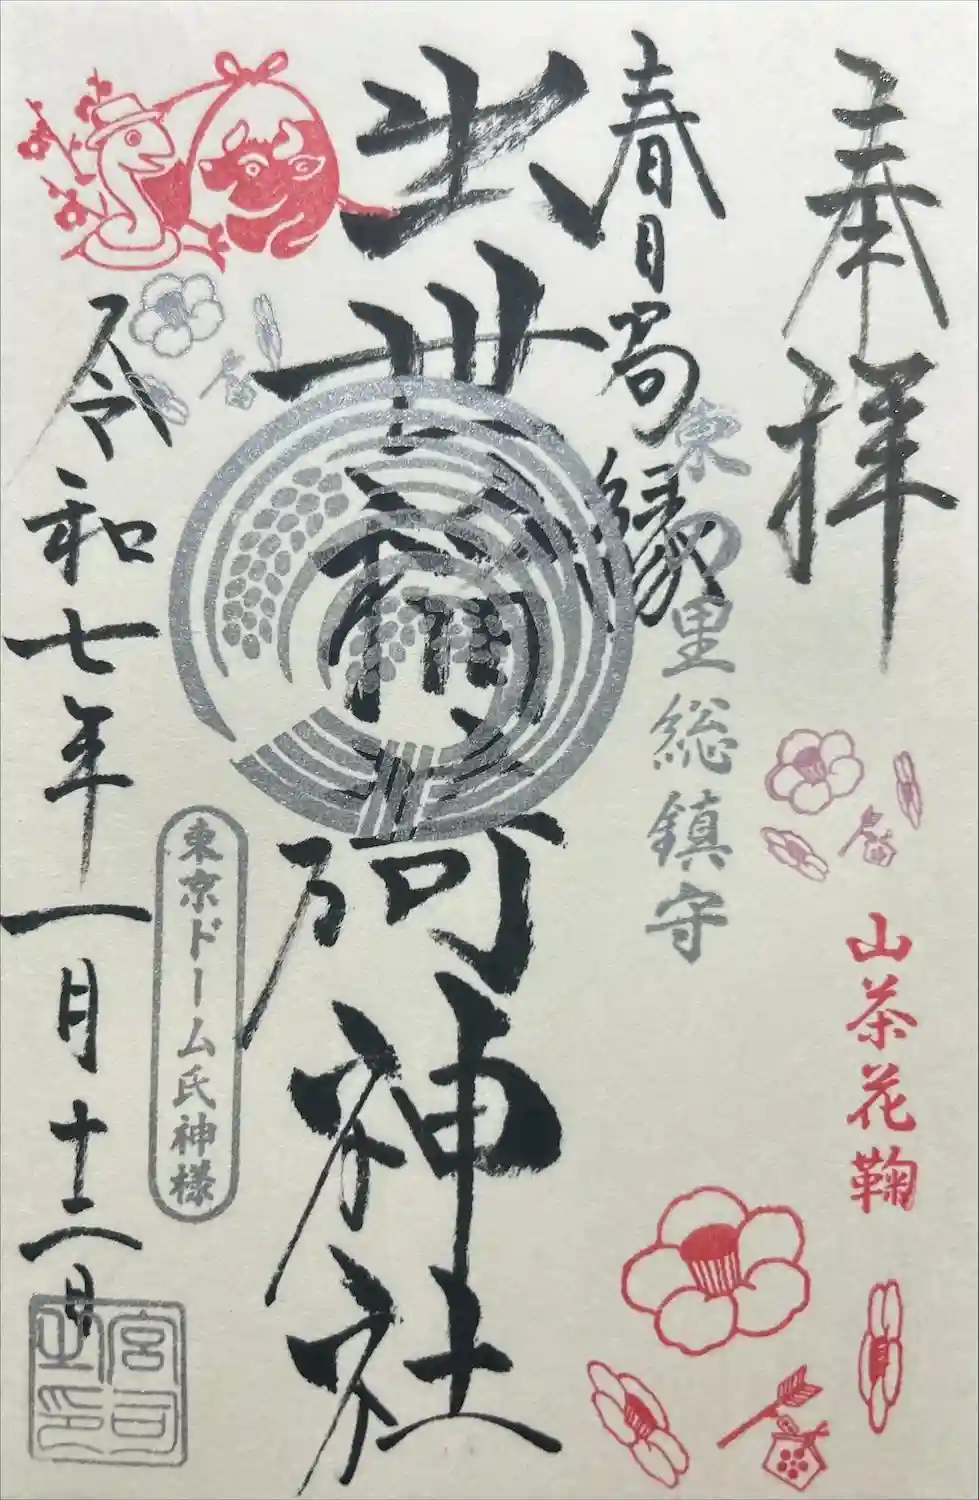 奉拝
山茶花鞠
春日局縁
東 里総鎮守
出世稲荷神社
東京ドーム氏神様
令和七年一月十二日
宮司之印